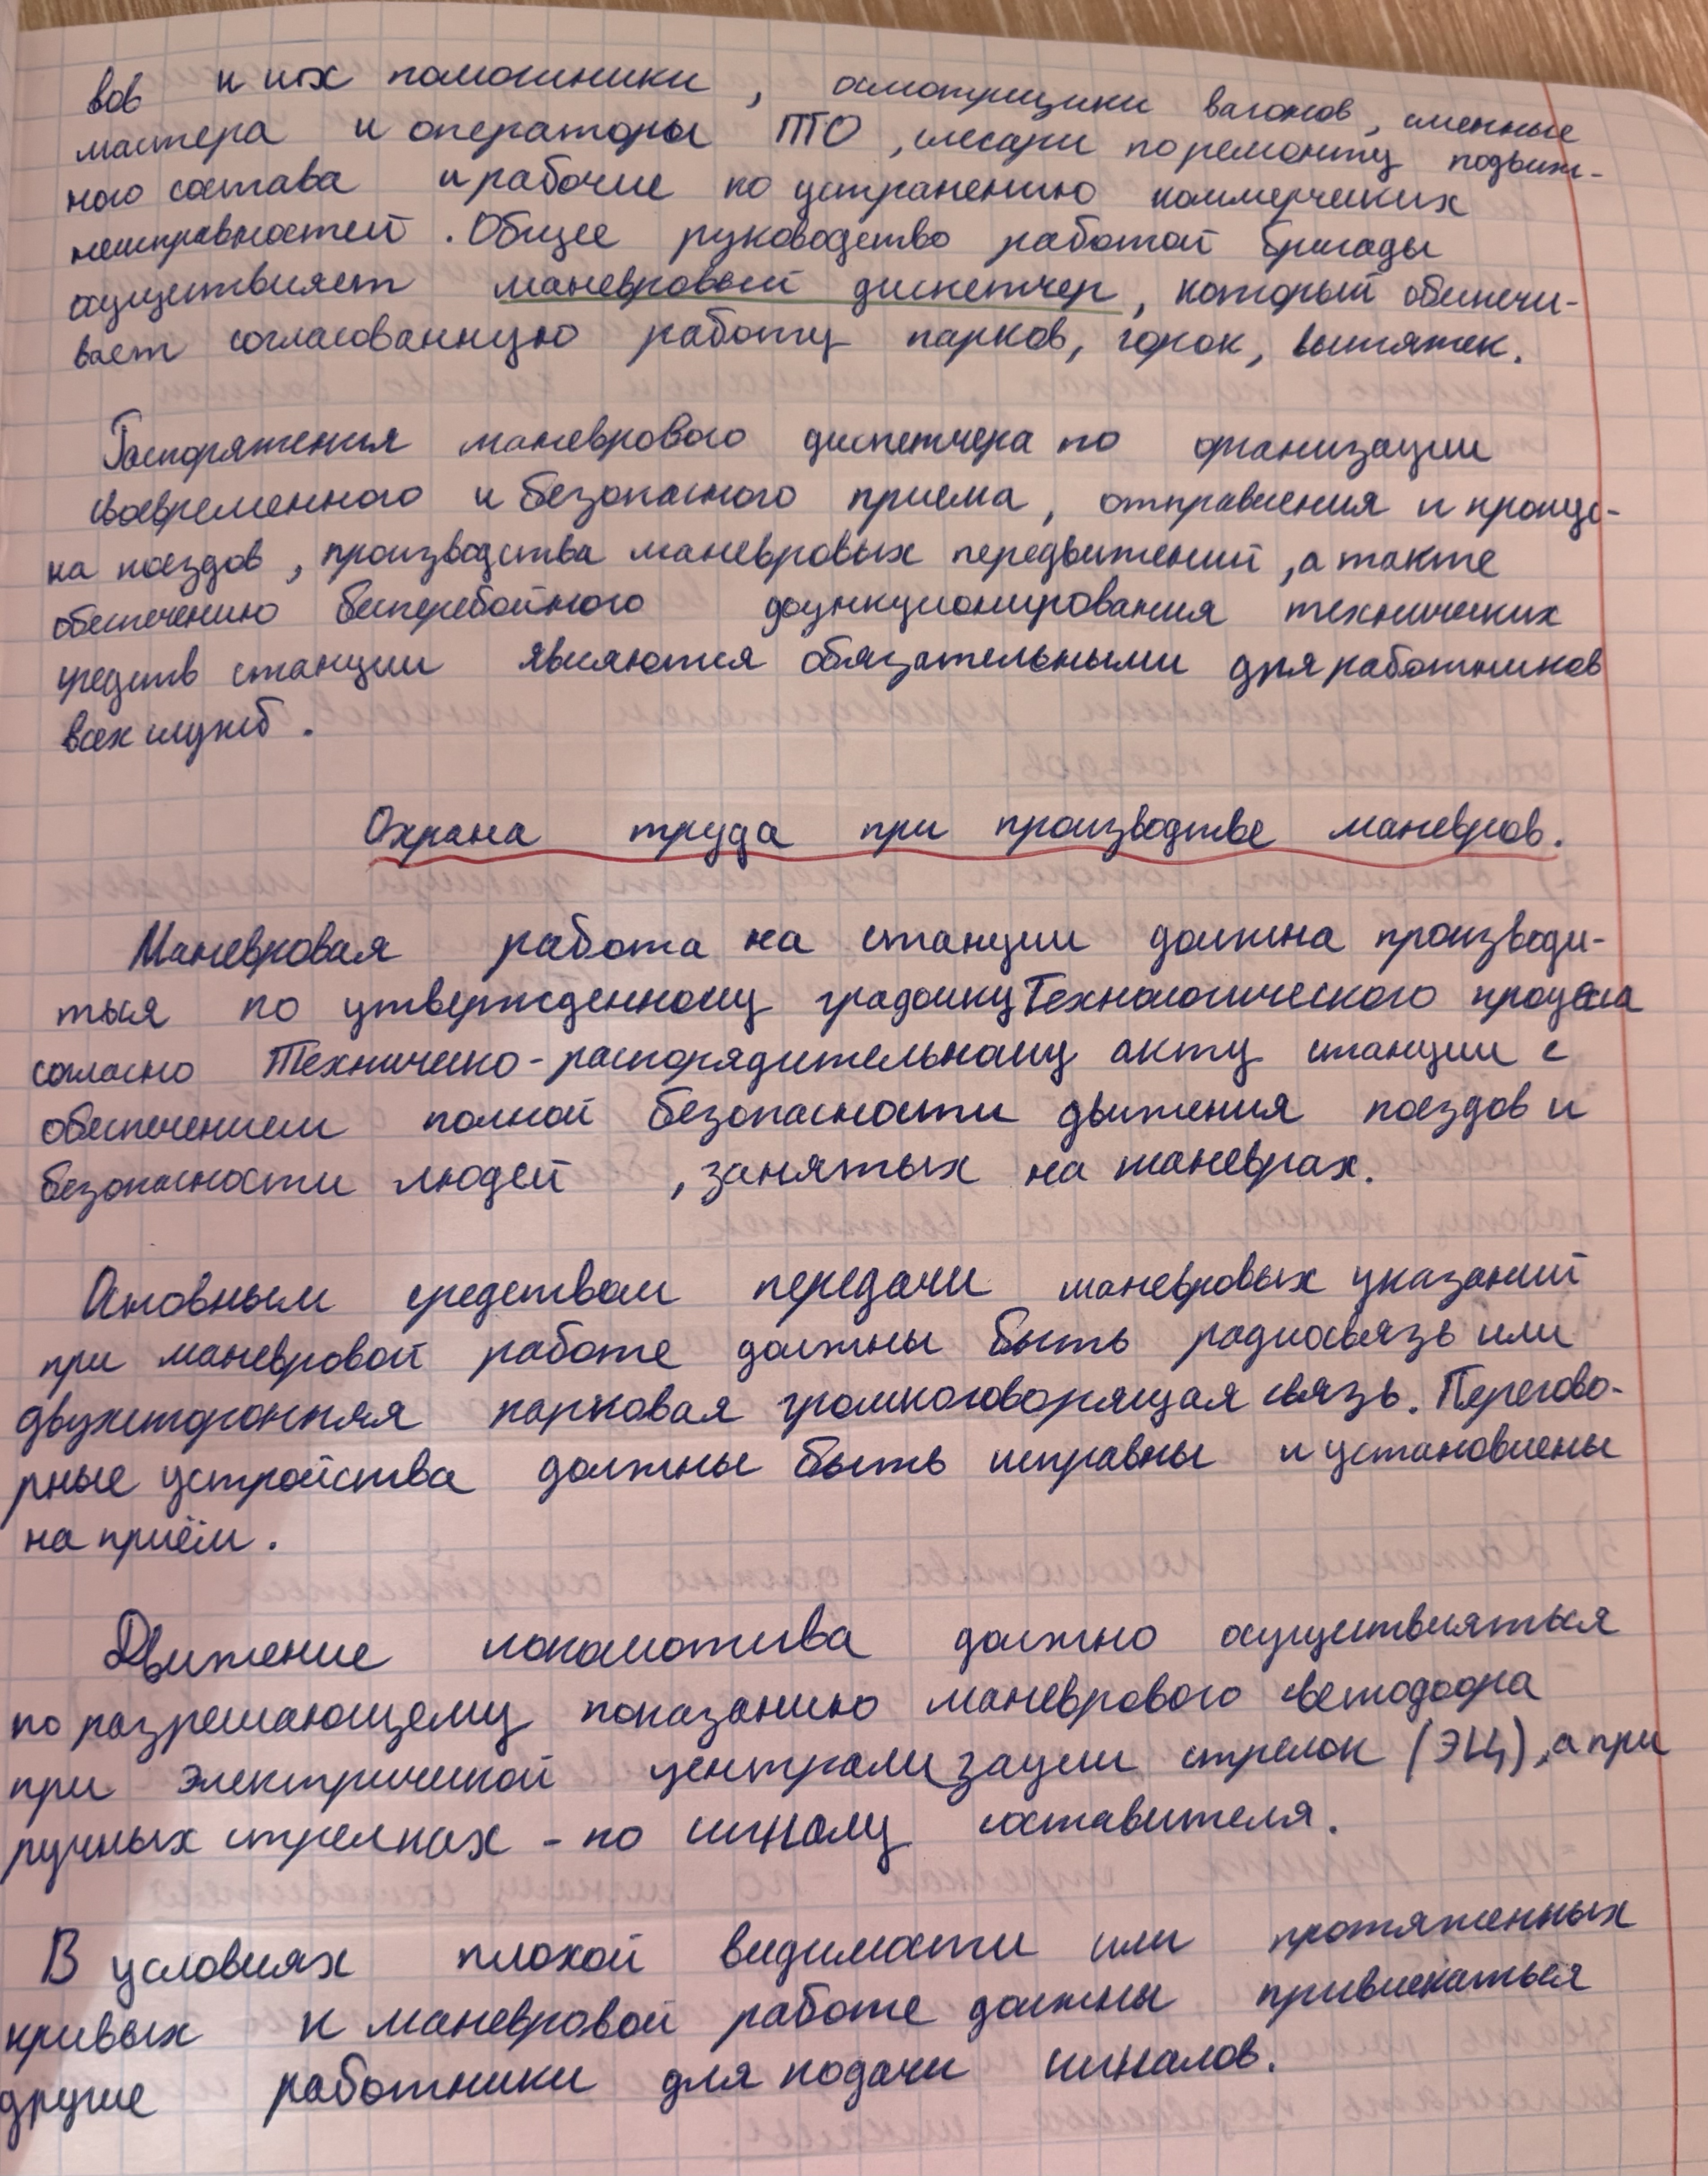 вов и их помошники, осмотрщики вагонов, сменные
мастера и операторы ПТО, слесари по ремонту подвиж-
ного состава и рабочие по устранению коммерческих
неисправностей. Общее руководство работой бригады
осуществляет маневровый диспетчер, который обеспечи-
вает согласованную работу парков, горок, вытяжек.
Распоряжения маневрового диспетчера по организации
своевременного и безопасного приема, отправления и пропус-
ка поездов, производства маневровых передвижений, а также
обеспечению бесперебойного функционирования технических
средств станции являются обязательными для работников
всех служб.
Охрана труда при производстве маневров.
Маневровая работа на станции должна производи-
ться по утвержденному графику Технологического процесса
согласно Техническо-распорядительному акту станции с
обеспечением полной безопасности движения поездов и
безопасности людей, занятых на маневрах.
Основным средством передачи маневровых указаний
при маневровой работе должны быть радиосвязь или
двухсторонняя парковая громкоговорящая связь. Перегово-
рные устройства должны быть исправны и установлены
на приём.
Движение локомотива должно осуществляться
по разрешающему показанию маневрового светофора
при электрической централизации стрелок (ЭЦ), а при
ручных стрелках - по сигналу составителя.
В условиях плохой видимости или протяженных
кривых к маневровой работе должны привлекаться
другие работники для подачи сигналов.